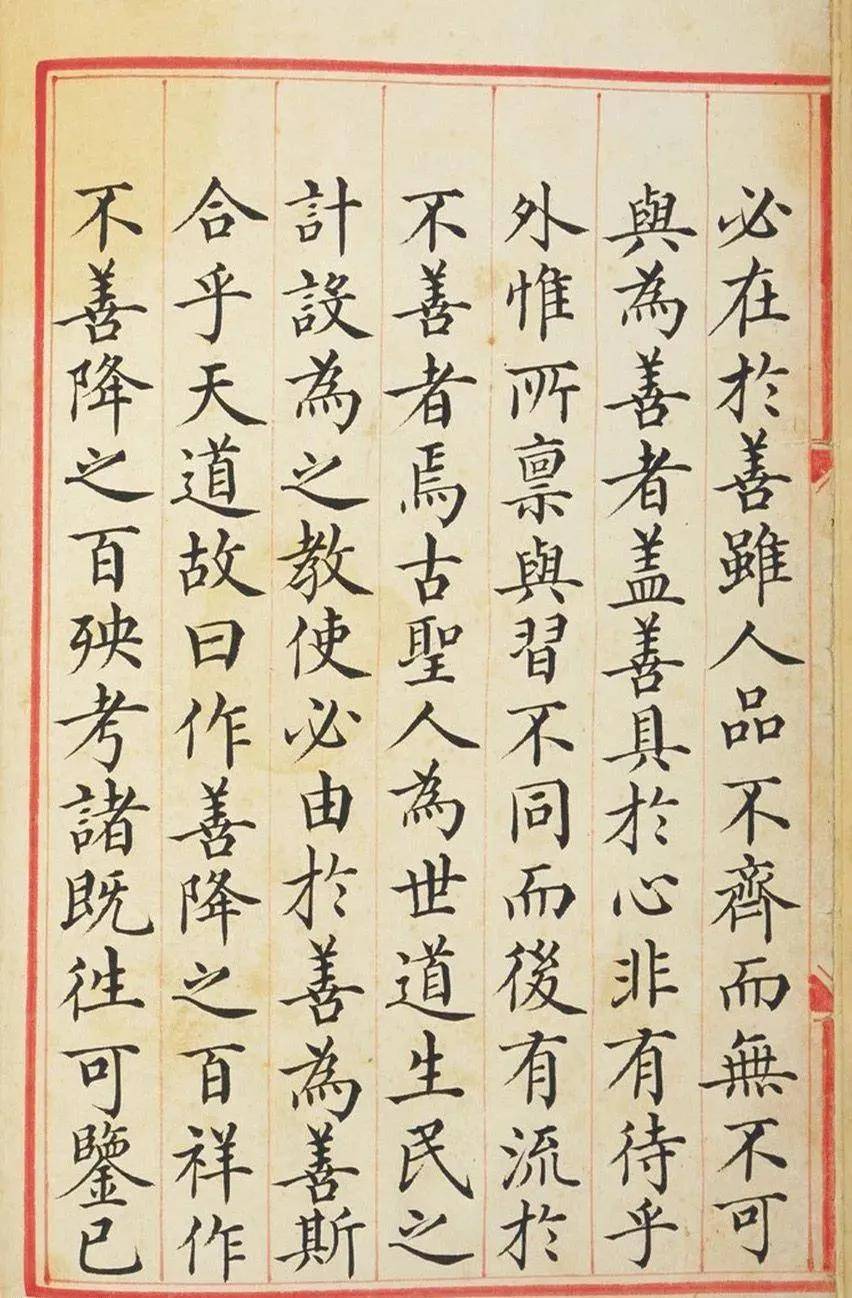 必在於善雖人品不齊而無不可
與為善者盖善具於心非有待乎
外惟所禀與習不同而後有流於
不善者焉古聖人為世道生民之
計設為之教使必由於善為善斯
合乎天道故曰作善降之百祥作
不善降之百殃考諸既徃可鑒已